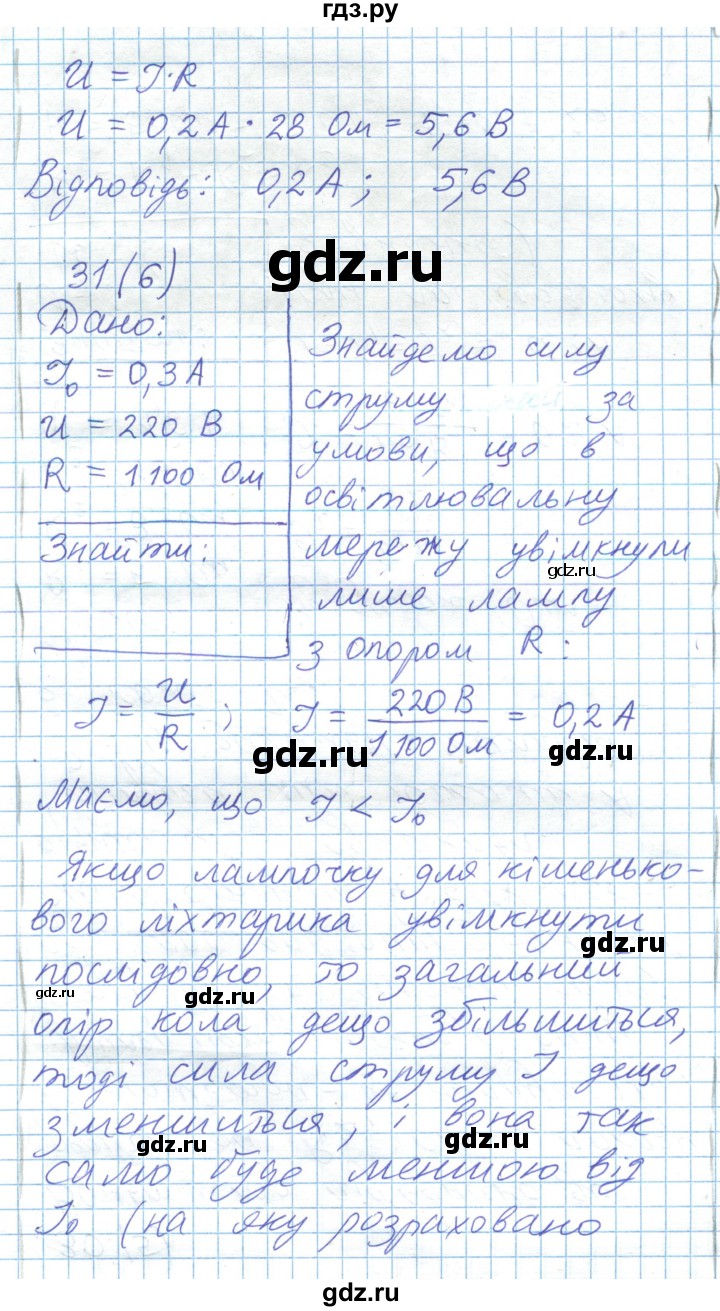 гдз.ру
U = I·R
U = 0,2 А · 28 Ом = 5,6 В
Відповідь: 0,2 А; 5,6 В
31(6)
gdz.ru
Дано:
I₀ = 0,3 А
U = 220 В
R = 1100 Ом
Знайти:
Знайдемо силу
струму за
умови, що в
освітлювальну
мережу увімкнули
gdz.ru
лише лампу
з опором R:
I = U/R ; I = 220 В/1100 Ом = 0,2 А
gdz.ru gdz.ru
Маємо, що I < I₀
Якщо лампочку для кишенько-
вого ліхтарика увімкнути
gdz.ru
послідовно, то загальний
gdz.ru gdz.ru
опір кола дещо збільшиться,
тоді сила струму I дещо
зменшиться, і вона так
gdz.ru gdz.ru
само буде меншою від
I₀ (на яку розраховано
gdz.ru gdz.ru
gdz.ru